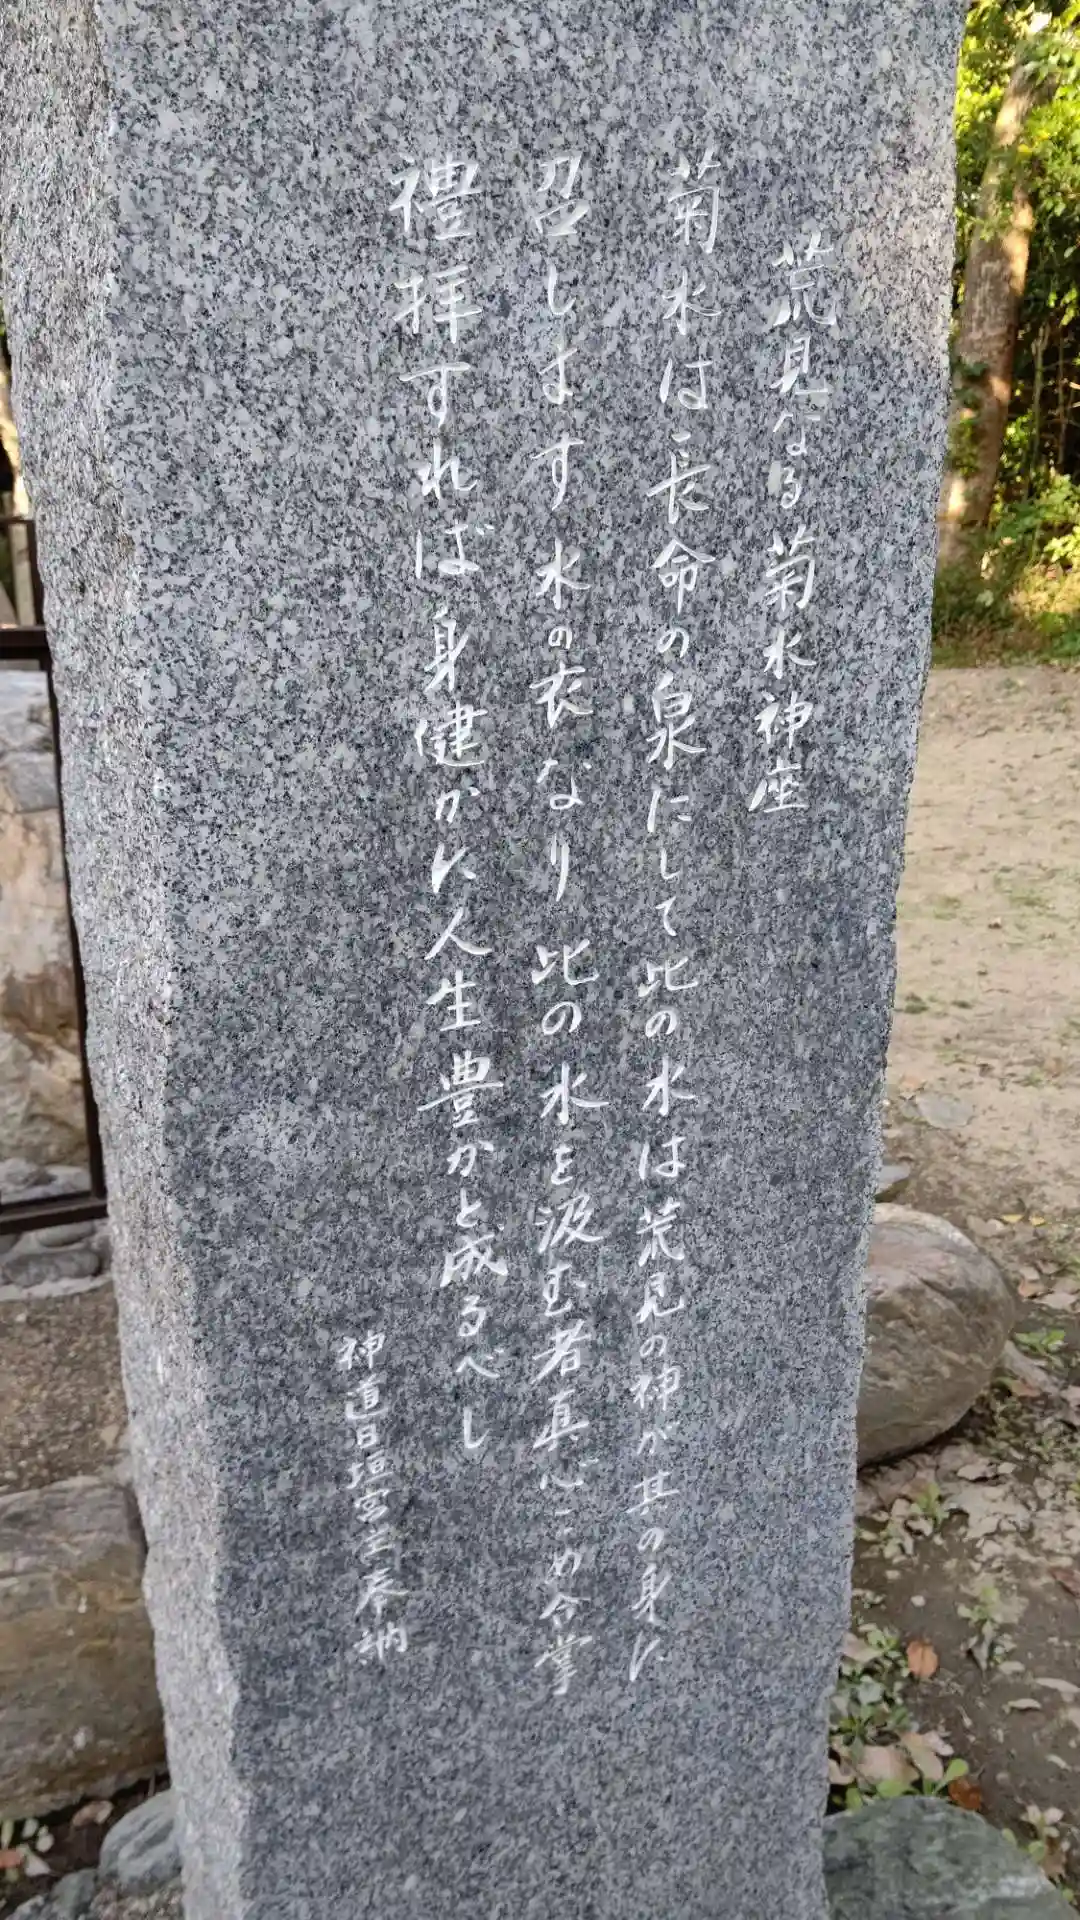 荒見なる菊水神座
菊水は長命の泉にして此の水は荒見の神が其の身に
召します水の衣なり此の水を汲む者真心こめ合掌
禮拝すれば身健かに人生豊かと成るべし
神道日垣宮主奉納